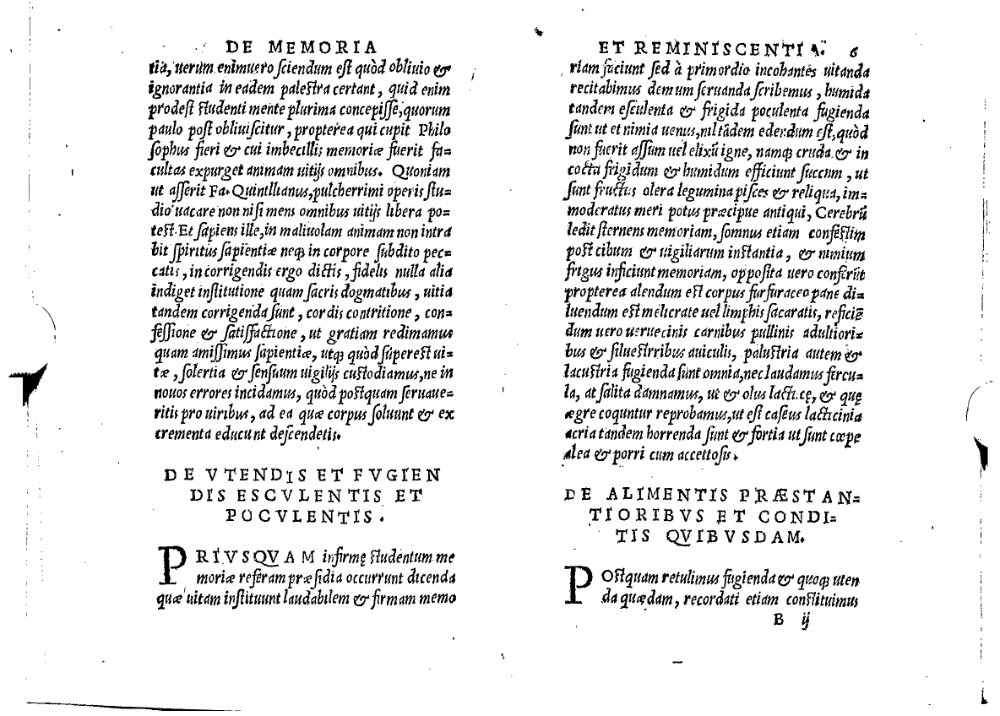 DE MEMORIA
tia, uerum enimuero sciendum est quòd obliuio &
ignorantia in eadem palestra certant, quid enim
prodest studenti mente plurima concepisse, quorum
paulo post obliuiscitur, propterea qui cupit Philo
sophus fieri & cui imbecillis memoriæ fuerit fa=
cultas expurget animam uitijs omnibus. Quoniam
ut asserit Fa. Quintllianus, pulcherrimi operis stu=
dio uacare non nisi mens omnibus uitijs libera po=
test. Et sapiens ille, in maliuolam animam non intra
bit spiritus sapientiæ neq; in corpore subdito pec=
catis, in corrigendis ergo dictis, fidelis nulla alia
indiget institutione quam sacris dogmatibus, uitia
tandem corrigenda sunt, cordis contritione, con=
fessione & satisfactione, ut gratiam redimamus
quam amissimus sapientiæ, utq; quòd superest ui=
tæ, solertia & sensuum uigilijs custodiamus, ne in
nouos errores incidamus, quòd postquam seruaue=
ritis pro uiribus, ad ea quæ corpus soluunt & ex
crementa educunt descendetis.
DE VTENDIS ET FVGIEN
DIS ESCVLENTIS ET
POCVLENTIS.
PRIVSQVAM infirmę studentum me
moriæ referam præsidia occurrunt dicenda
quæ uitam instituunt laudabilem & firmam memo
ET REMINISCENTI A. 6
riam faciunt sed à primordio incohantes uitanda
recitabimus demum seruanda scribemus, humida
tandem esculenta & frigida poculenta fugienda
sunt ut et nimia uenus, nil tãdem edendum est, quòd
non fuerit assum uel elixũ igne, namq; cruda & in
cocta frigidum & humidum efficiunt succum, ut
sunt fructus olera legumina pisces & reliqua, im=
moderatus meri potus præcipue antiqui, Cerebrũ
ledit sternens memoriam, somnus etiam confestim
post cibum & uigiliarum instantia, & nimium
frigus inficiunt memoriam, opposita uero conferũt
propterea alendum est corpus furfuraceo pane di=
luendum est melicrate uel limphis sacaratis, reficiẽ
dum uero ueruecinis carnibus pullinis adultiori=
bus & siluestrribus auiculis, palustria autem &
lacustria fugienda sunt omnia, nec laudamus fercu=
la, at salita damnamus, ut & olus lactucę, & quę
ægre coquntur reprobamus, ut est caseus lacticinia
acria tandem horrenda sunt & fortia ut sunt cœpe
alea & porri cum accettosis.
DE ALIMENTIS PRÆSTAN=
TIORIBVS ET CONDI=
TIS QVIBVSDAM.
POstquam retulimus fugienda & quoq; uten
da quædam, recordati etiam constituimus
B ij